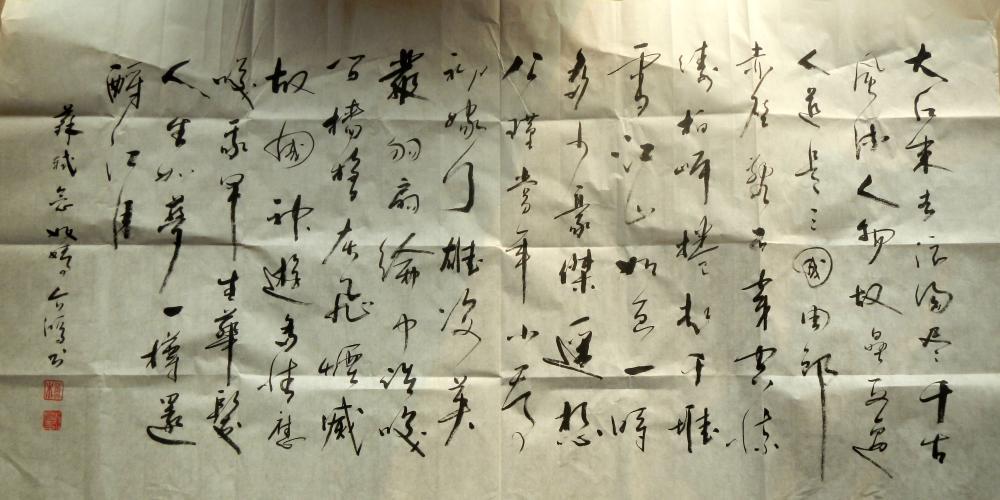 大江東去浪淘尽千古
風流人物故壘西邊
人道是三國周郎
赤壁亂石穿空驚
濤拍岸捲起千堆
雪江山如画一時
多少豪傑遥想
公瑾當年小喬
初嫁了雄姿英
發羽扇綸巾談笑
间檣櫓灰飛煙滅
故國神遊多情應
笑我早生華髮
人生如夢一樽還
酹江月
蘇軾念奴嬌